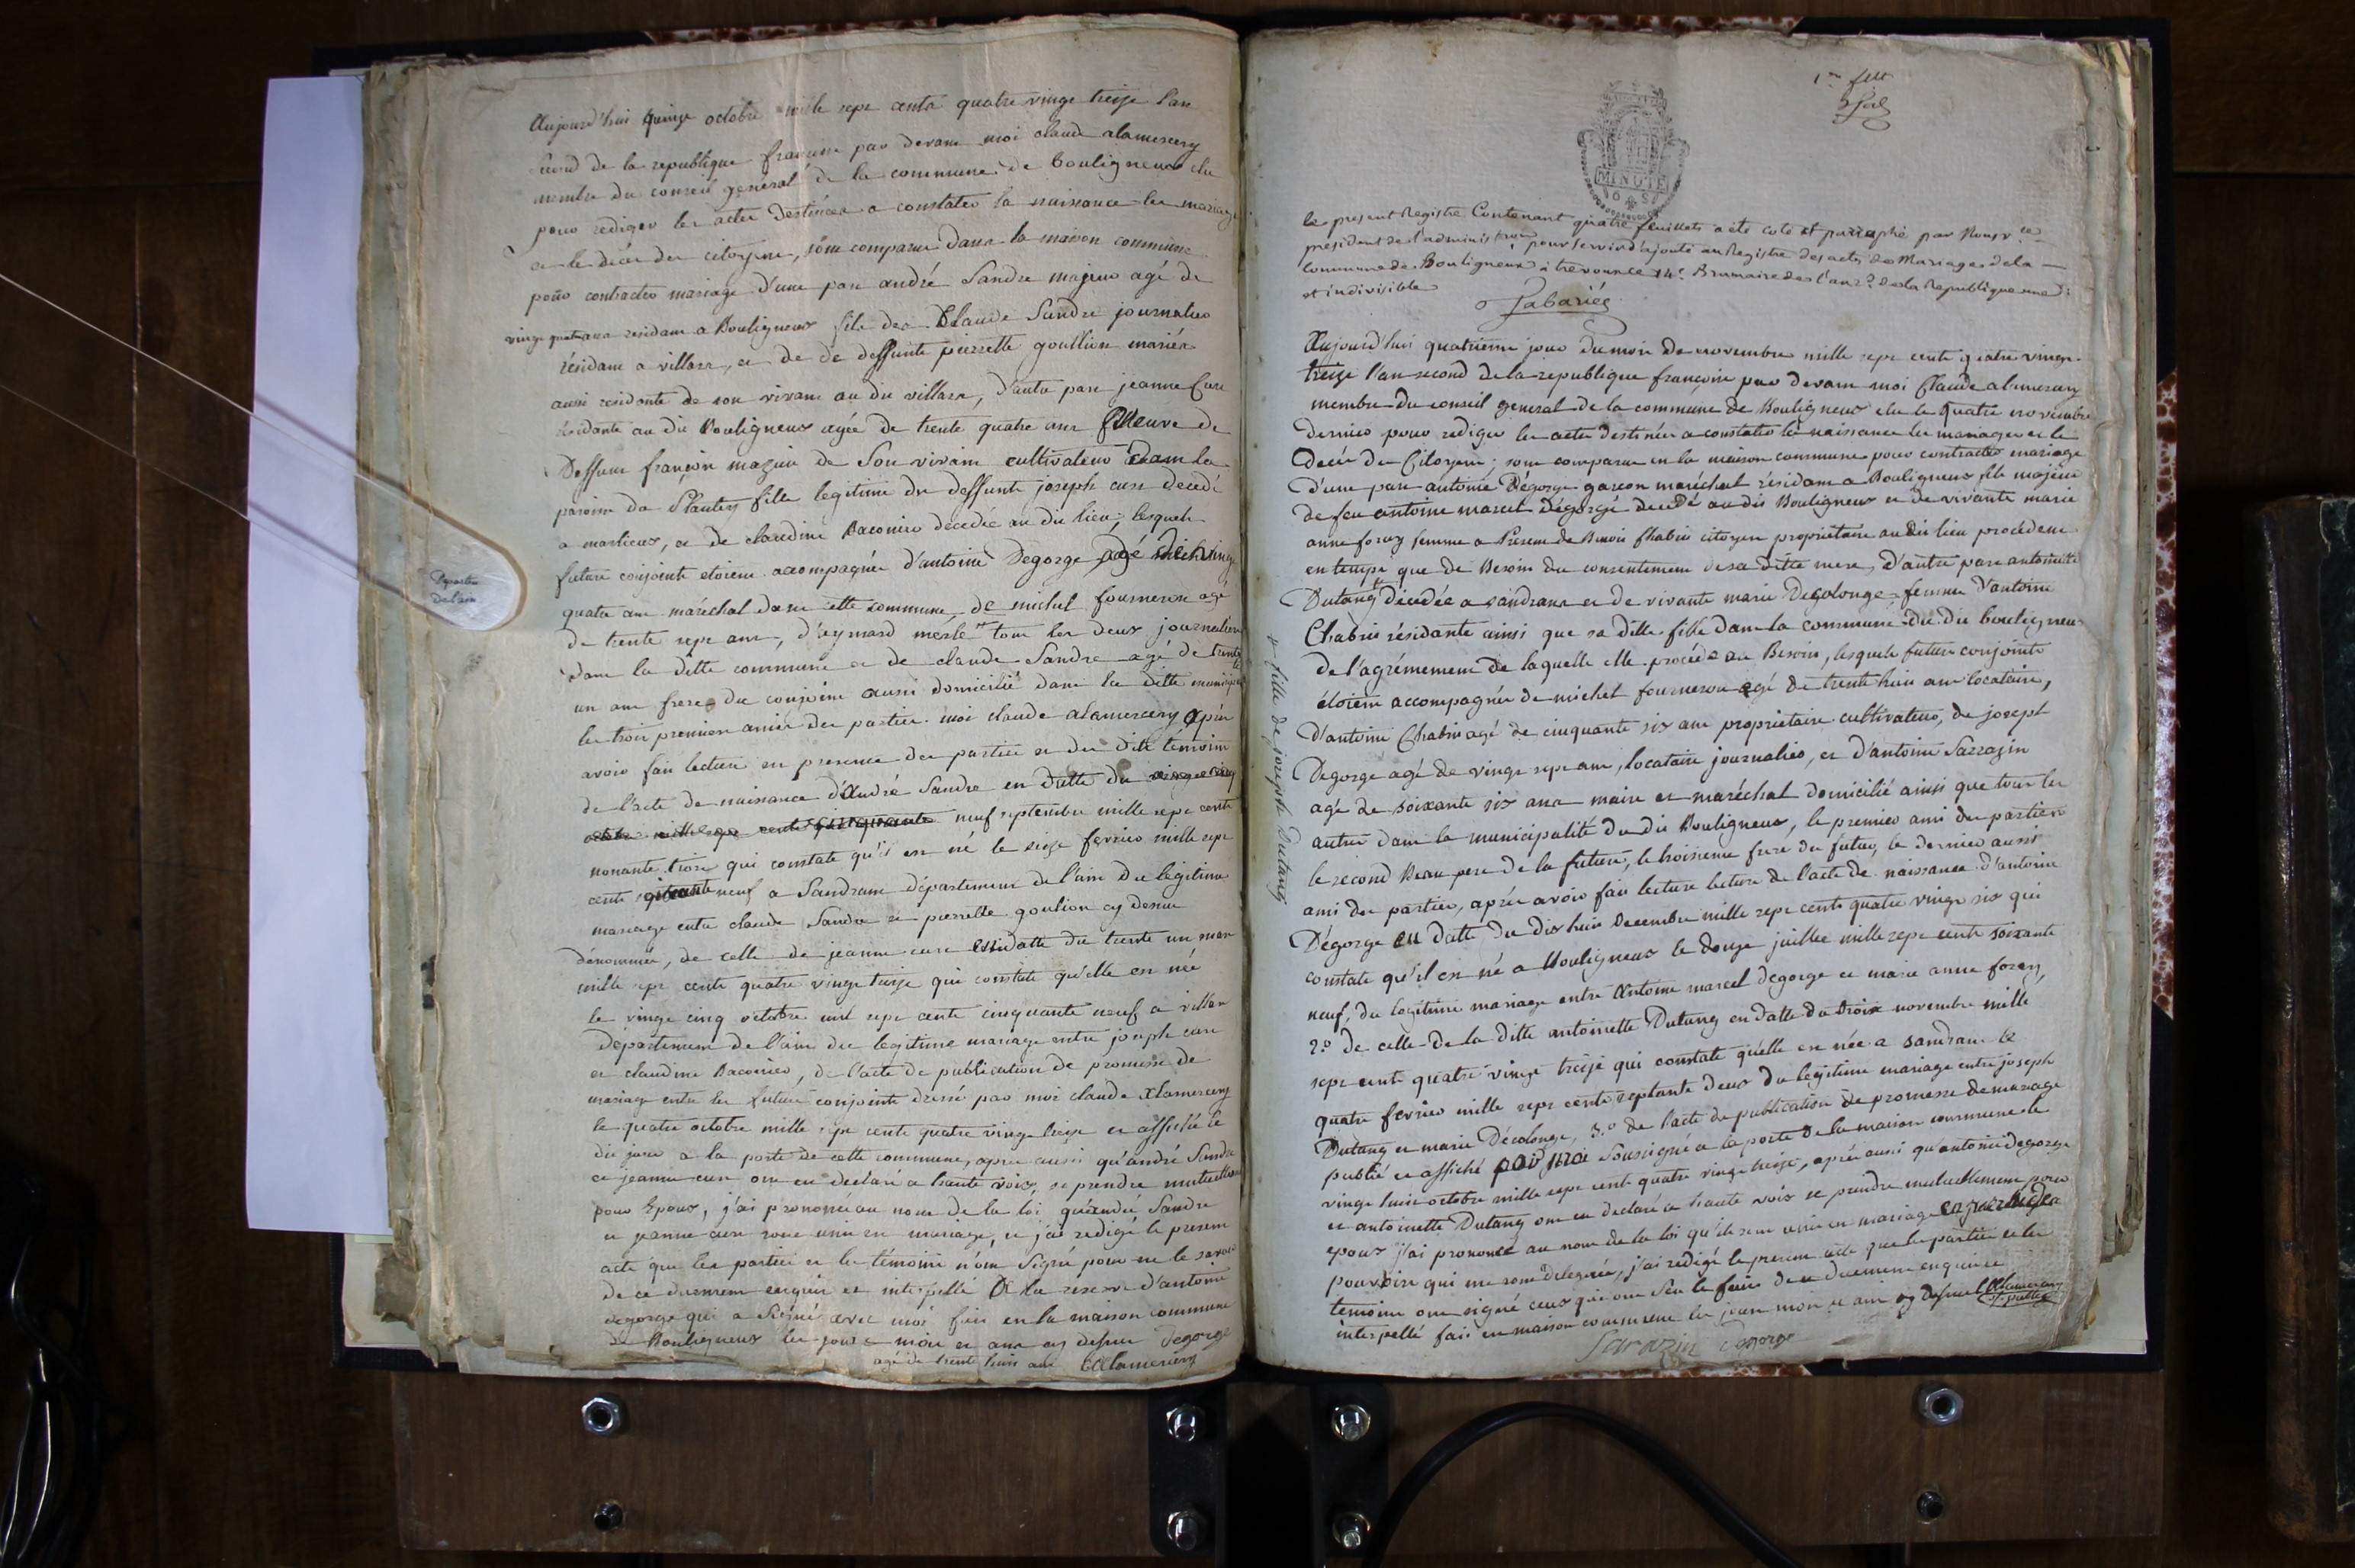 Aujourd'hui quinze octobre mille sept cents quatre vingt treize l'an
second de la republique francaise par devant moi claude alamercery
membre du conseil général de la commune de bouligneux elu
pour rediger les actes destinées a constater la naissance les mariages
et le décés des citoyens, sont comparus dans la maison commune
pour contracter mariage d'une part andré Sandre majeur agé de
vingt quatre ans residant a Bouligneux fils de Claude Sandre journalier
résidant a villars, et de deffunte pierrette goullion mariés
aussi residante de son vivant au dit villars, d'autre part jeanne cure
résidante au dit Bouligneux agée de trente quatre ans veuve de
Deffunt françois mazuir de son vivant cultivateur dans la
paroisse de Plantey fille legitime de deffunt joseph cure decedé
a marlieux, et de claudine Baconier décédée au dit lieu, lesquels
futurs conjoints etoient accompagnés d'antoine Degorge agé
quatre ans maréchal dans cette commune, de michel fourneron agé
de trente sept ans, d'eymard merle tous les deux journaliers
dans la ditte commune et de claude Sandre agé de trente
un ans frere du conjoint aussi domicilié dans la ditte municipalité
les trois premiers amis des parties. moi claude alamercery après
avoir fait lecture en presence des parties et des dits témoins
de l'acte de naissance d'André Sandre en datte du
neuf septembre mille sept cents
nonante trois qui constate qu'il est né le seize fevrier mille sept
cents neuf a Sandrans département de l'ain du légitime
mariage entre claude Sandre et pierrette goulion cy dessus
dénommés, de celle de jeanne cure en datte du trente un mars
mille sept cents quatre vingt treize qui constate qu'elle est née
le vingt cinq octobre mil sept cents cinquante neuf a villars
département de l'ain du legitime mariage entre joseph cure
et claudine Baconier, de l'acte de publication de promesse de
mariage entre les futurs conjoints dressé par moi claude Alamercery
le quatre octobre mille sept cents quatre vingt treize et affiché le
dit jour a la porte de cette commune, apres aussi qu'andré Sandre
et jeanne cure ont eu déclaré a haute voix, se prendre mutuellement
pour Epoux, j'ai prononcé au nom de la loi qu'andré Sandre
et jeanne cure sont unis en mariage, et j'ai redigé le present
acte que les parties et les témoins n'ont signé pour ne le savoir
de ce duement enquis et interpellé A la réserve d'antoine
degorge qui a signé avec moi fait en la maison commune
de Bouligneux les jours mois et ans cy dessus degorge
agé de trente huit ans C Alamercery
Departe
De l'ain
1er feuillet
MINUTE
le present Registre Contenant quatre feuillets a été coté et paraphé par Nous
president de l'administration pour servir d'ajouté au Registre des actes de Mariages de la
Commune de Bouligneux à trevoux ce 14e Brumaire de l'an 2e de la Republique une
et indivisible
Jabariés
Aujourd'hui quatrieme jour du mois de novembre mille sept cents quatre vingt
treize l'an second de la republique françoise par devant moi Claude alamercery
membre du conseil general de la commune de Bouligneux elu le quatre novembre
dernier pour rediger les actes destinés a constater la naissance les mariages et le
décés des Citoyens; sont comparus en la maison commune pour contracter mariage
d'une part antoine Dégorge garcon maréchal résidant a Bouligneux fils majeur
de feu antoine marcel Dégorgé decedé au dit Bouligneux et de vivante marie
anne forey femme a Présent de Benoit Chabrie citoyen propriétaire au dit lieu procédent
en temps que de Besoin du consentement de sa ditte mere, d'autre part antoinette
Dutang décédée a sandrans et de vivante marie Decolonge femme d'antoine
Chabrie résidante ainsi que sa ditte fille dans la commune du dit bouligneux
de l'agrément de laquelle elle procéde au Besoin, lesquels futurs conjoints
étoient accompagnés de michel fourneron agé de trente huit ans locataire,
d'antoine Chabrie agé de cinquante six ans propriétaire cultivateur, de joseph
Degorge agé de vingt sept ans, locataire journalier, et d'antoine Sarrazin
agé de soixante six ans maire et maréchal domicilié ainsi que tous les
autres dans la municipalité du dit Bouligneux, le premier ami des parties
le second Beau pere de la future, le troisieme frere du futur, le dernier aussi
ami des parties, aprés avoir fait lecture lecture de l'acte de naissance d'antoine
Dégorge en datte du dix huit Decembre mille sept cents quatre vingt six qui
constate qu'il est né a Bouligneux le douze juillet mille sept cents soixante
neuf, du legitime mariage entre Antoine marcel degorge et marie anne forey,
2.o de celle de la ditte antoinette Dutang en datte du trois novembre mille
sept cents quatre vingt treize qui constate qu'elle est née a sandrans le
quatre fevrier mille sept cents septante deux du legitime mariage entre joseph
Dutang et marie Décolonge, 3.o de l'acte de publication de promesse de mariage
publié et affiché par moi soussigné a la porte de la maison commune le
vingt huit octobre mille sept cents quatre vingt treize, aprés aussi qu'antoine degorge
et antoinette Dutang ont eu declaré a haute voix se prendre mutuellement pour
epoux j'ai prononcé au nom de la loi qu'ils sont unis en mariage en vertu des
pouvoirs qui me sont delegués, j'ai redigé le present acte que les parties et les
temoins ont signé ceux qui ont seu le faire de ce duement enquis et
interpellé fait en maison commune les jours mois et ans cy dessus C Alamercery
Sarazin degorge
fille de joseph Dutang